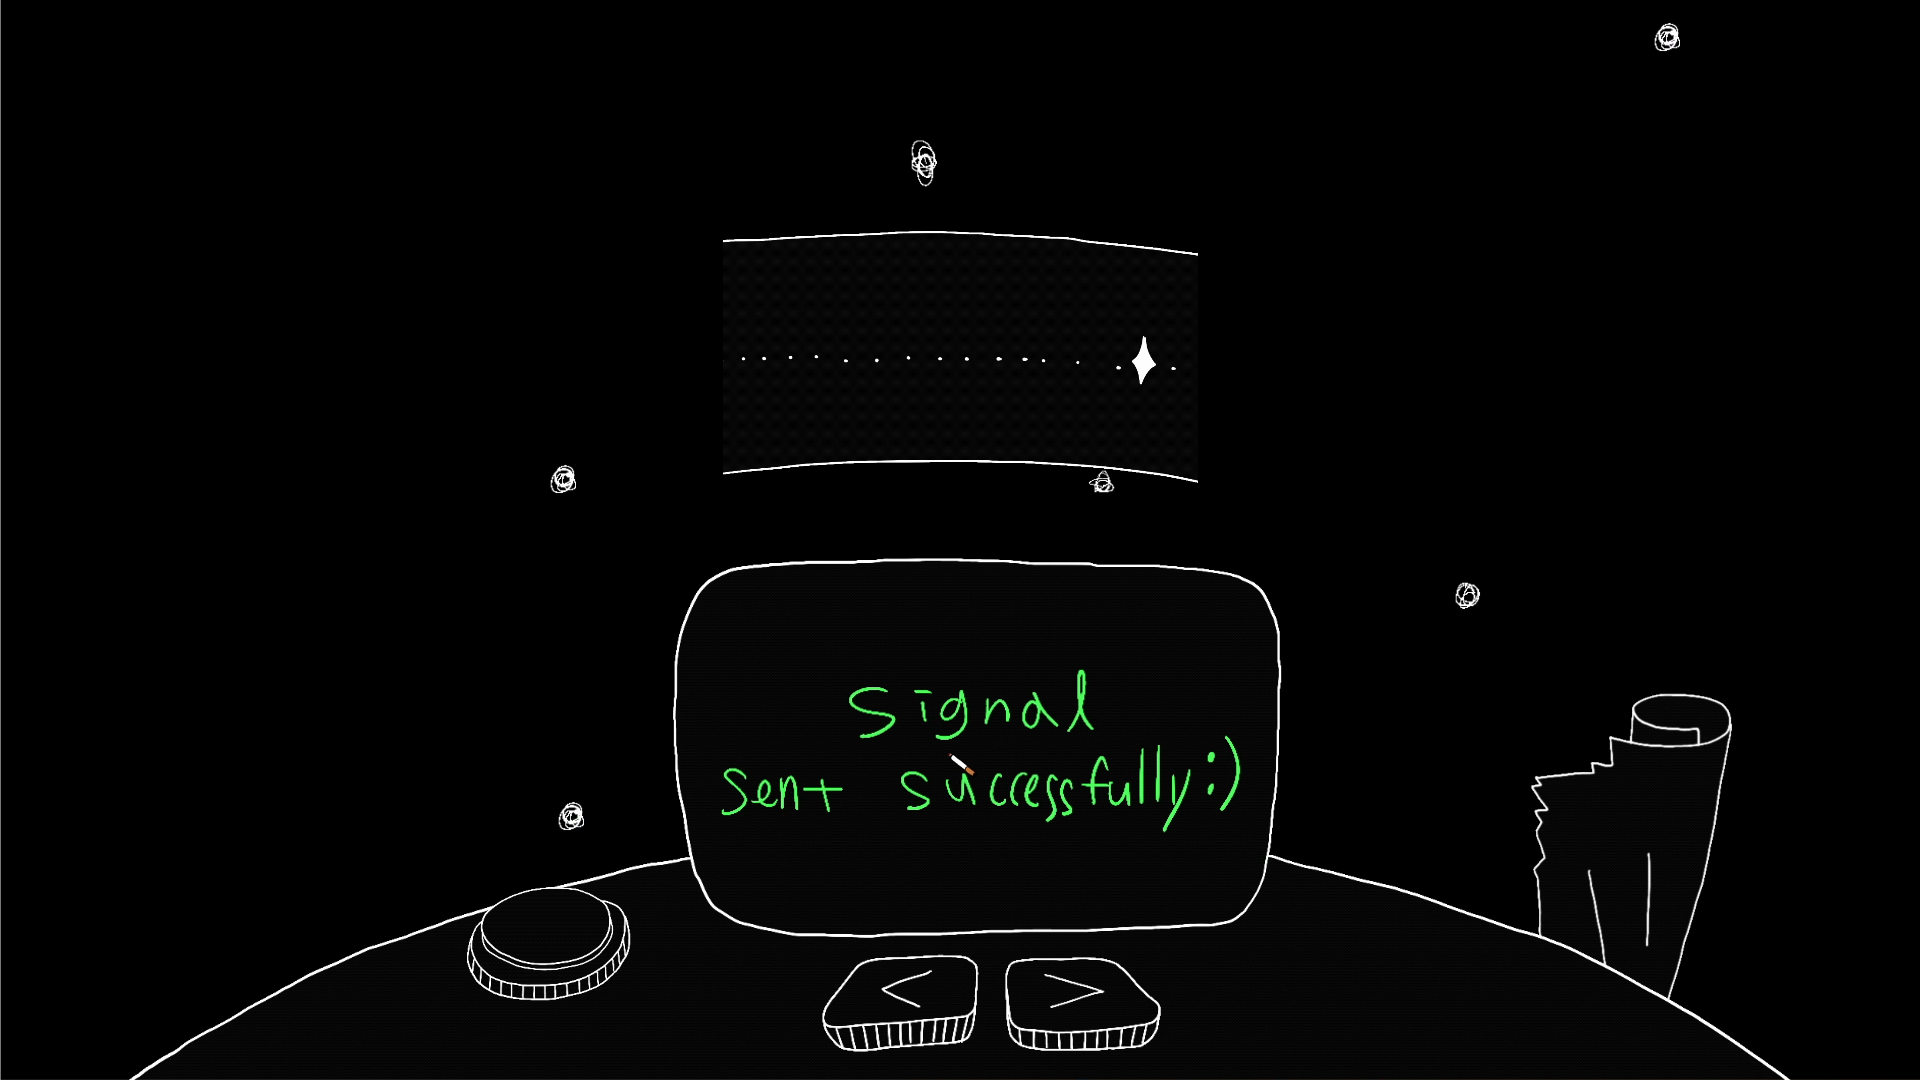 Signal
sent successfully:)
< >